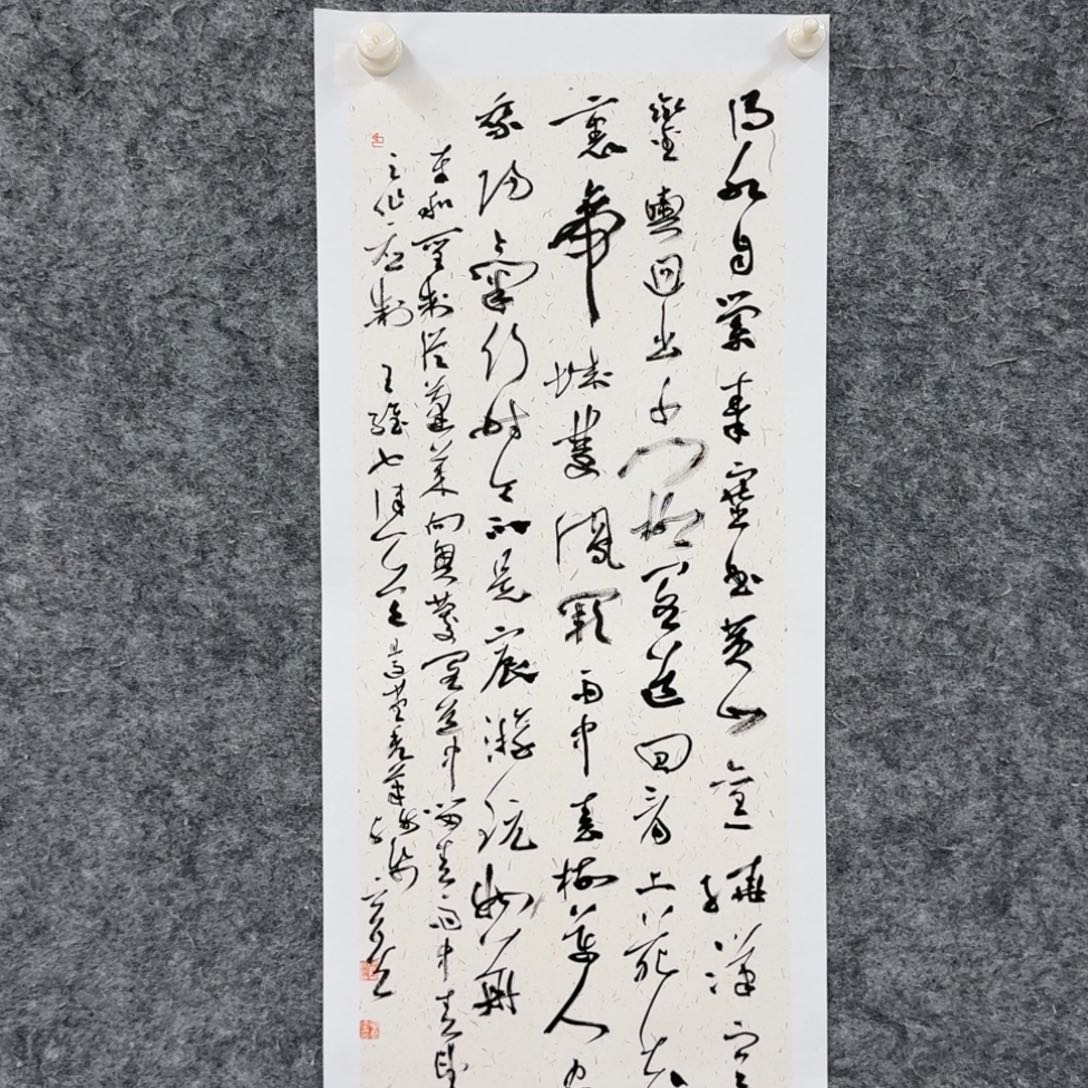 渭水自縈秦塞曲黄山舊繞漢宮
鑾輿迴出千門柳閣道回看上苑花
裏帝城雙鳳闕雨中春樹萬人家
乘陽氣行時令不是宸游玩物華
奉和聖制從蓬萊向興慶閣道中留春雨中春望
之作應制 王維七律一首